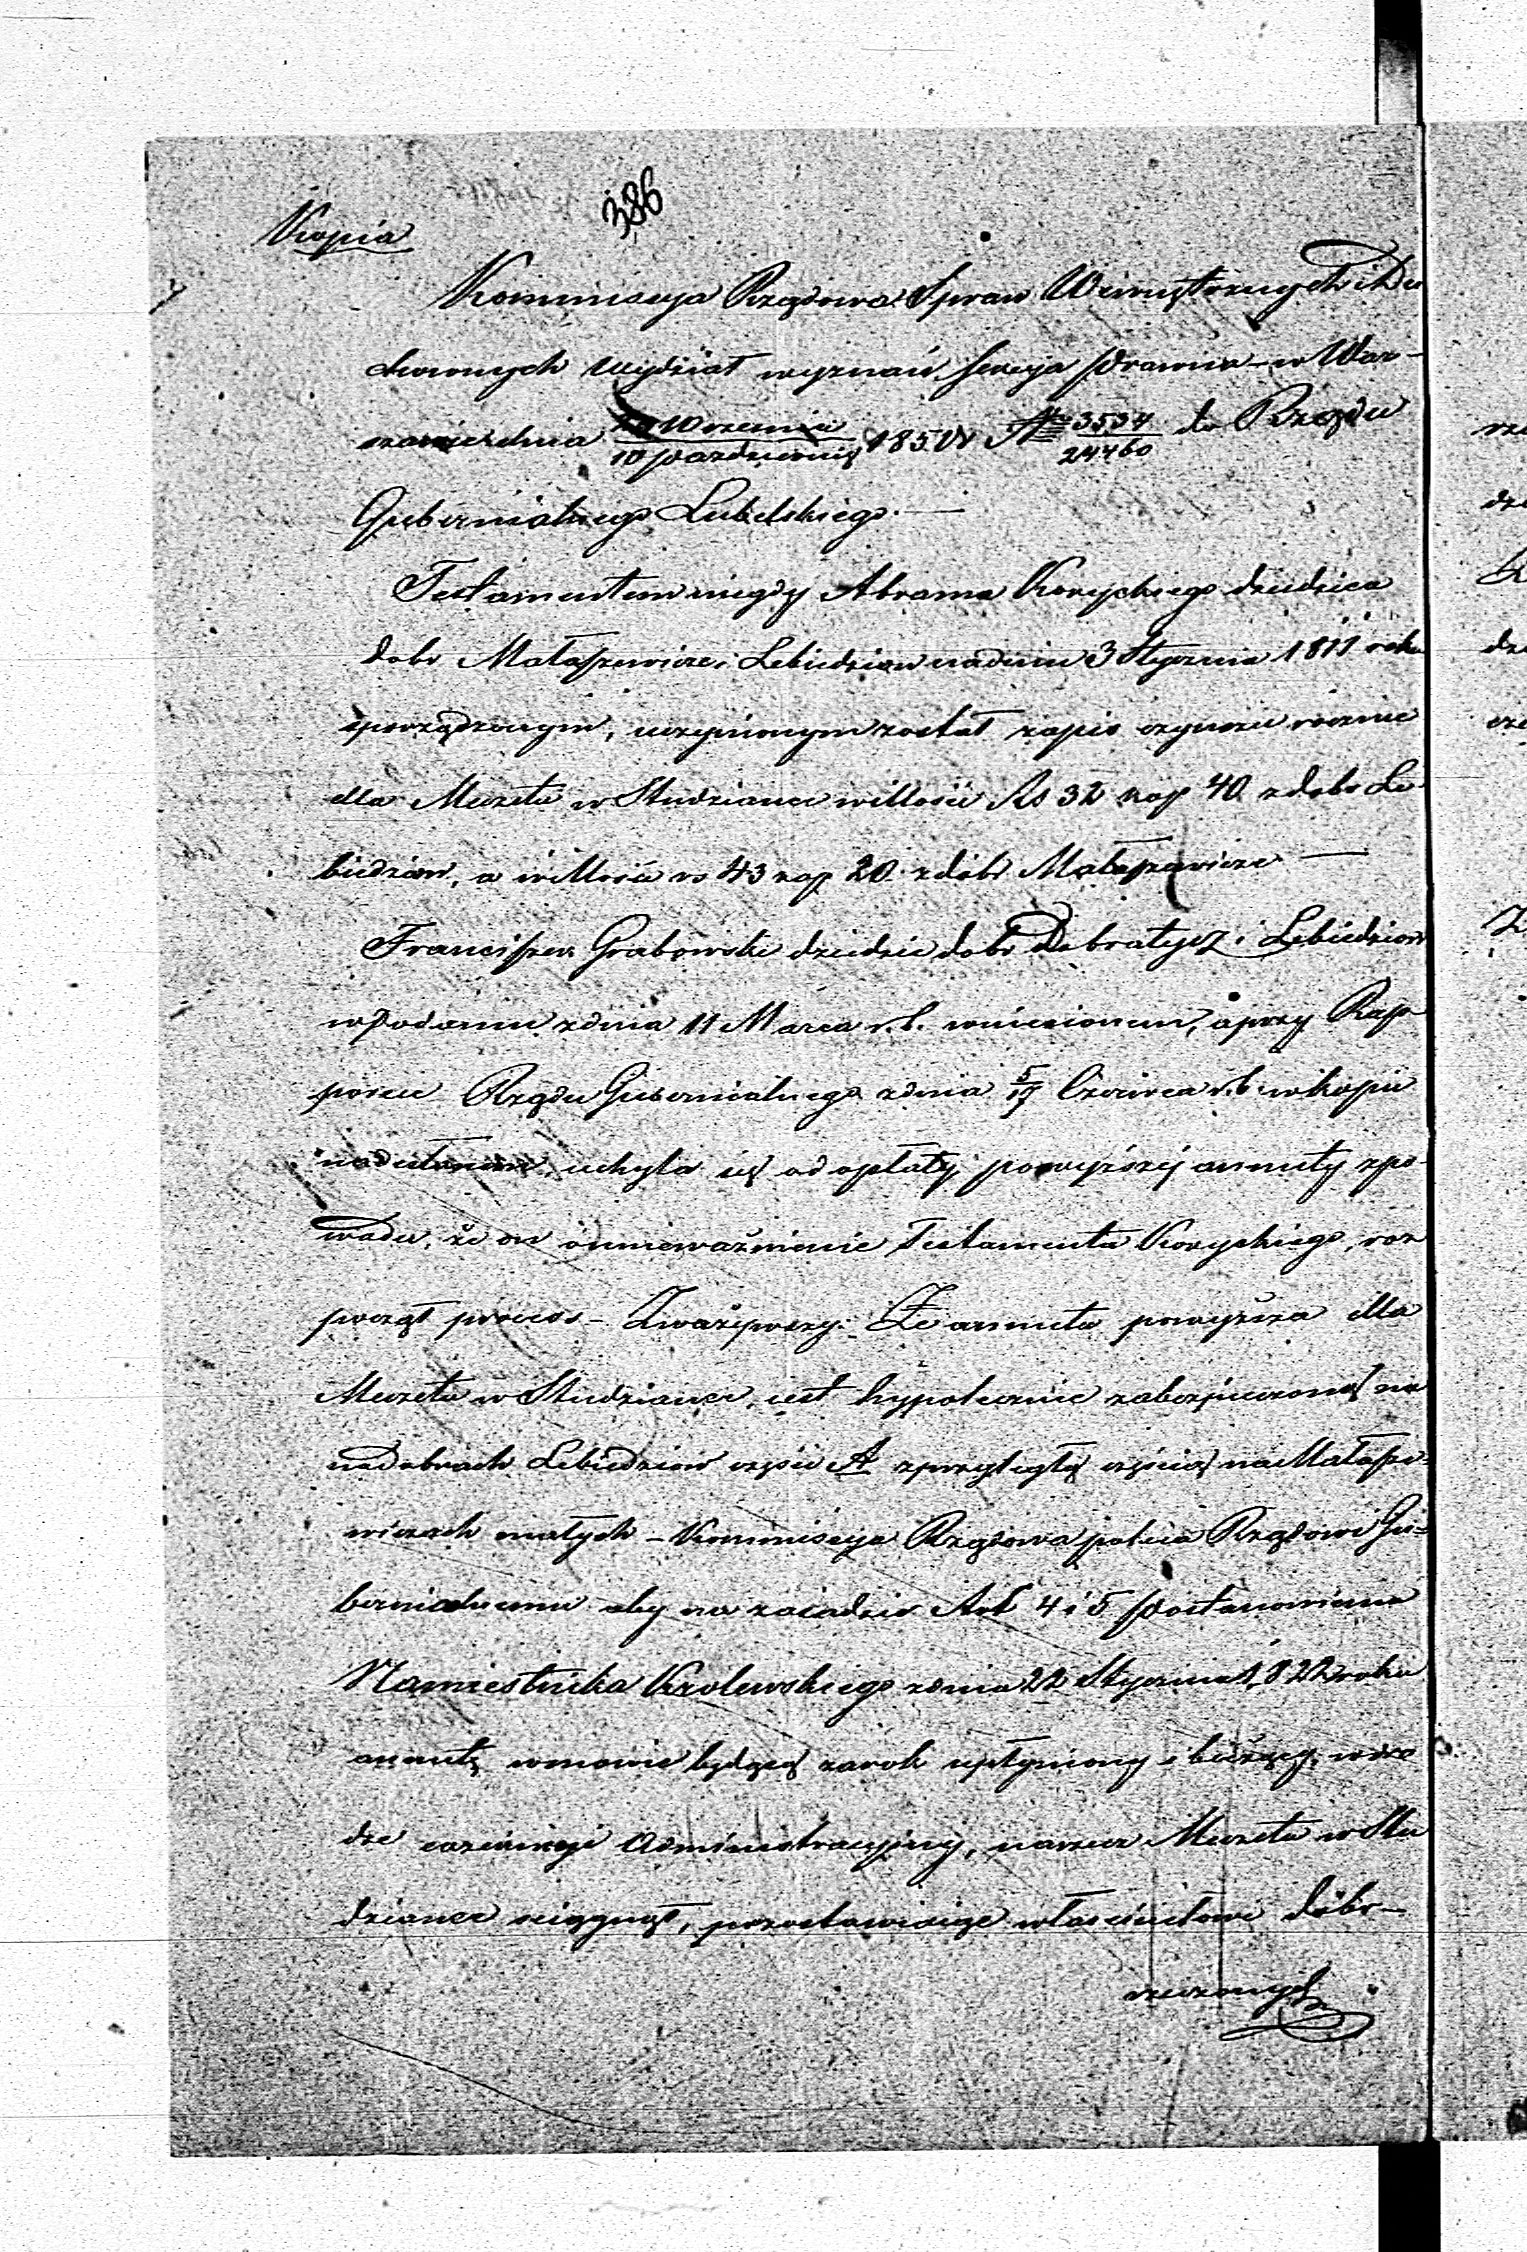 386
Kopia
Kommissya Rządowa Spraw Wewnętrznych i Du
chownych Wydział wyznań Sekcya Prawna w War-
szawie dnia Września / 10 października 185 r N 3534 / 24460 do Rządu
Gubernialnego Lubelskiego. —
Testamentem niegdy Abrama Koryckiego dziedzica
dobr Małaszewicze i Lebiedziew na dniu 3 Stycznia 1811 roku
sporządzonym, uczynionym został zapis czynszu rocznie
dla Meczetu w Studziance w ilości Rs 32 kop 40 z dobr Le
biedziew, a w ilości rs 43 kop 20 z dóbr Małaszewicze —
Franciszek Grabowski dziedzic dobr Dobratycz i Lebiedziew
w podaniu z dnia 11 Marca r. b. wniesionem, a przy Rap
porcie Rządu Gubernialnego z dnia 5/17 Czerwca r. b. w kopii
nadesłanem, uchyla się od opłaty powyższej annuity z po-
wodu, że on o unieważnienie Testamentu Koryckiego, roz
począł proces – Zważywszy: Że annuita powyższa dla
Meczetu w Studziance, jest hypotecznie zabezpieczoną na
na dobrach Lebiedziew części A z przyległą częścią na Małasze-
wiczach małych – Kommissya Rządowa poleca Rządowi Gu=
bernialnemu aby na zasadzie Art 4 i 5 Postanowienia
Namiestnika Krolewskiego z dnia 22 Stycznia 1822 roku
annuitę w mowie będącą za rok upłyniony i bieżący, w dro
dze egzekucyi Administracyjnej, na rzecz Meczetu w Stu
dziance ściągnął, pozostawiając właścicielowi dóbr—
rzeczonych